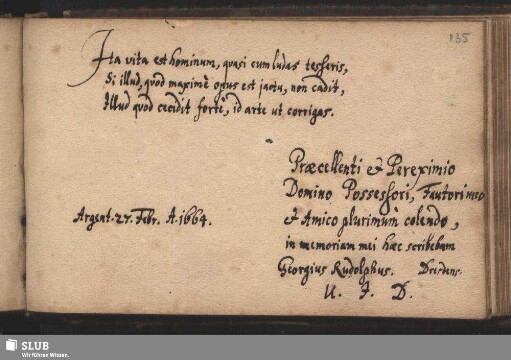 135
Ita vita est hominum, quasi cum ludas tesseris,
Si illud, quod maximè opus est jactu, non cadit,
Illud quod cecidit fortè, id arte ut corrigas.
Præcellenti & Pereximio
Domino Possessori, Fautori meo
& Amico plurimùm colendo,
in memoriam mei hæc scribebam
Georgius Rudolphus. Dresdens.
U. J. D.
Argent. 27. Febr. A. 1664.
SLUB
Wir führen Wissen.